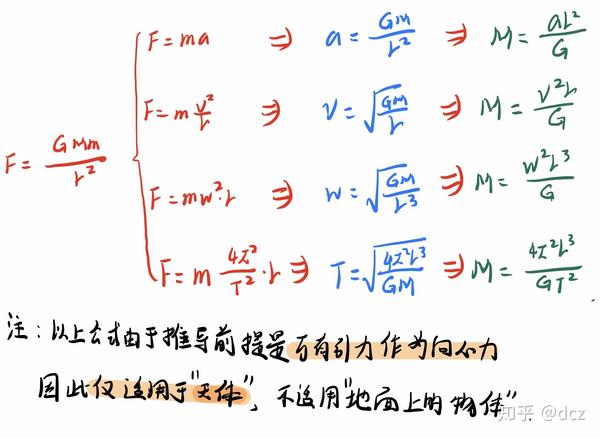 F=ma ⇒ a=GM/r² ⇒ M=ar²/G
F=m v²/r ⇒ v=√(GM/r) ⇒ M=v²r/G
F=GMm/r²
F=mw²·r ⇒ w=√(GM/r³) ⇒ M=w²r³/G
F=m 4π²/T²·r ⇒ T=√(4π²r³/GM) ⇒ M=4π²r³/GT²
注：以上公式由于推导前提是万有引力作为向心力
因此仅适用于"天体"，不适用"地面上的物体"．
知乎 @dcz